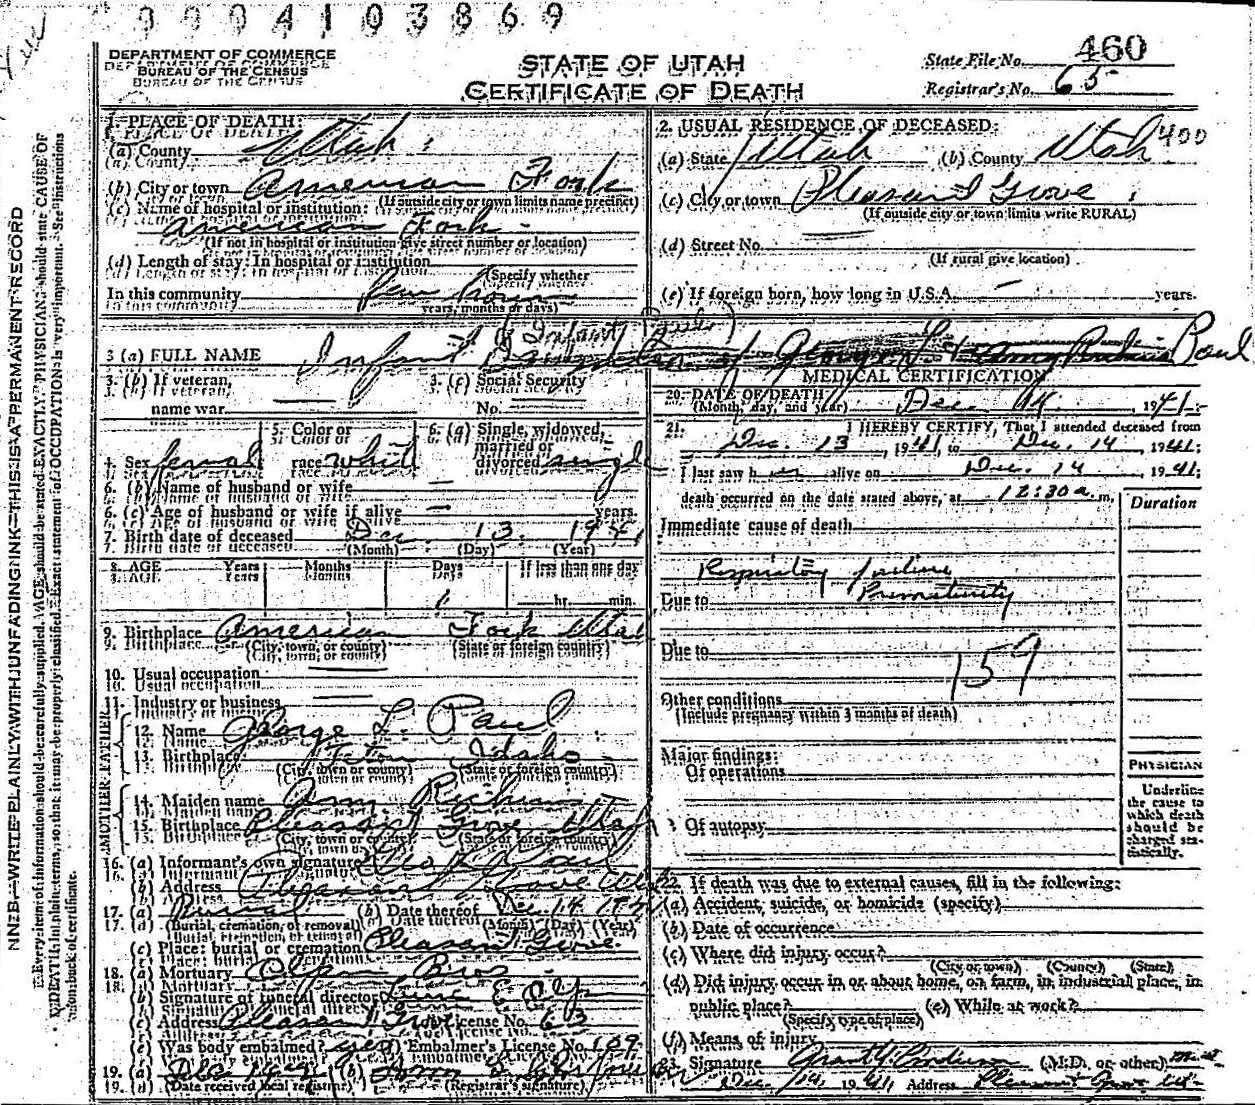 0 0 0 4 1 0 3 8 6 9
DEPARTMENT OF COMMERCE
BUREAU OF THE CENSUS
STATE OF UTAH
CERTIFICATE OF DEATH
State File No. 460
Registrar's No. 65
N. B.—WRITE PLAINLY WITH UNFADING INK—THIS IS A PERMANENT RECORD
Every item of information should be carefully supplied. AGE should be stated EXACTLY. PHYSICIAN should state CAUSE OF
DEATH in plain terms, so that it may be properly classified. Exact statement of OCCUPATION is very important. See instructions
on back of certificate.
1. PLACE OF DEATH:
(a) County Utah
(b) City or town American Fork
(If outside city or town limits name precinct)
(c) Name of hospital or institution:
American Fork
(If not in hospital or institution give street number or location)
(d) Length of stay: In hospital or institution
(Specify whether
In this community few hours
years, months or days)
2. USUAL RESIDENCE OF DECEASED:
(a) State Utah (b) County Utah 400
(c) City or town Pleasant Grove
(If outside city or town limits write RURAL)
(d) Street No.
(If rural give location)
(e) If foreign born, how long in U.S.A. — years.
(Infant Paul)
3 (a) FULL NAME Infant Daughter of George L. & Amy Paul
3. (b) If veteran,
name war
3. (c) Social Security
No.
4. Sex female
5. Color or
race white
6. (a) Single, widowed,
married or
divorced single
6. (b) Name of husband or wife —
6. (c) Age of husband or wife if alive — years.
7. Birth date of deceased Dec. 13, 1941
(Month) (Day) (Year)
8. AGE Years Months Days If less than one day
1 hr. min.
9. Birthplace American Fork Utah
(City, town, or county) (State or foreign country)
10. Usual occupation
11. Industry or business
FATHER
12. Name George L. Paul
13. Birthplace Teton Idaho
(City, town or county) (State or foreign country)
MOTHER
14. Maiden name Amy
15. Birthplace Pleasant Grove Utah
(City, town or county) (State or foreign country)
16. (a) Informant's own signature Geo L Paul
(b) Address Pleasant Grove Utah
17. (a) Burial (b) Date thereof Dec. 14 1941
(Burial, cremation, or removal) (Month) (Day) (Year)
(c) Place: burial or cremation Pleasant Grove
18. (a) Mortuary Olpin Bros
(b) Signature of funeral director E Olpin
(c) Address Pleasant Grove License No. 63
(e) Was body embalmed? yes Embalmer's License No. 109
19. (a) Dec 14-41 (b)
(Date received local registrar) (Registrar's signature)
MEDICAL CERTIFICATION
20. DATE OF DEATH
(Month, day, and year) Dec. 14, 1941.
21. I HEREBY CERTIFY, That I attended deceased from
Dec. 13, 1941, to Dec. 14, 1941;
I last saw her alive on Dec. 14 1941;
death occurred on the date stated above, at 12:30 a. m.
Duration
Immediate cause of death
Respiratory failure
Due to Prematurity
Due to
159
Other conditions
(Include pregnancy within 3 months of death)
Major findings:
Of operations
Of autopsy
PHYSICIAN
Underline
the cause to
which death
should be
charged sta-
tistically.
22. If death was due to external causes, fill in the following:
(a) Accident, suicide, or homicide (specify)
(b) Date of occurrence
(c) Where did injury occur?
(City or town) (County) (State)
(d) Did injury occur in or about home, on farm, in industrial place, in
public place? (e) While at work?
(Specify type of place)
(f) Means of injury
Signature Grant Y. Anderson (M.D. or other)
Dec. 14, 1941 Address Pleasant Grove Ut-